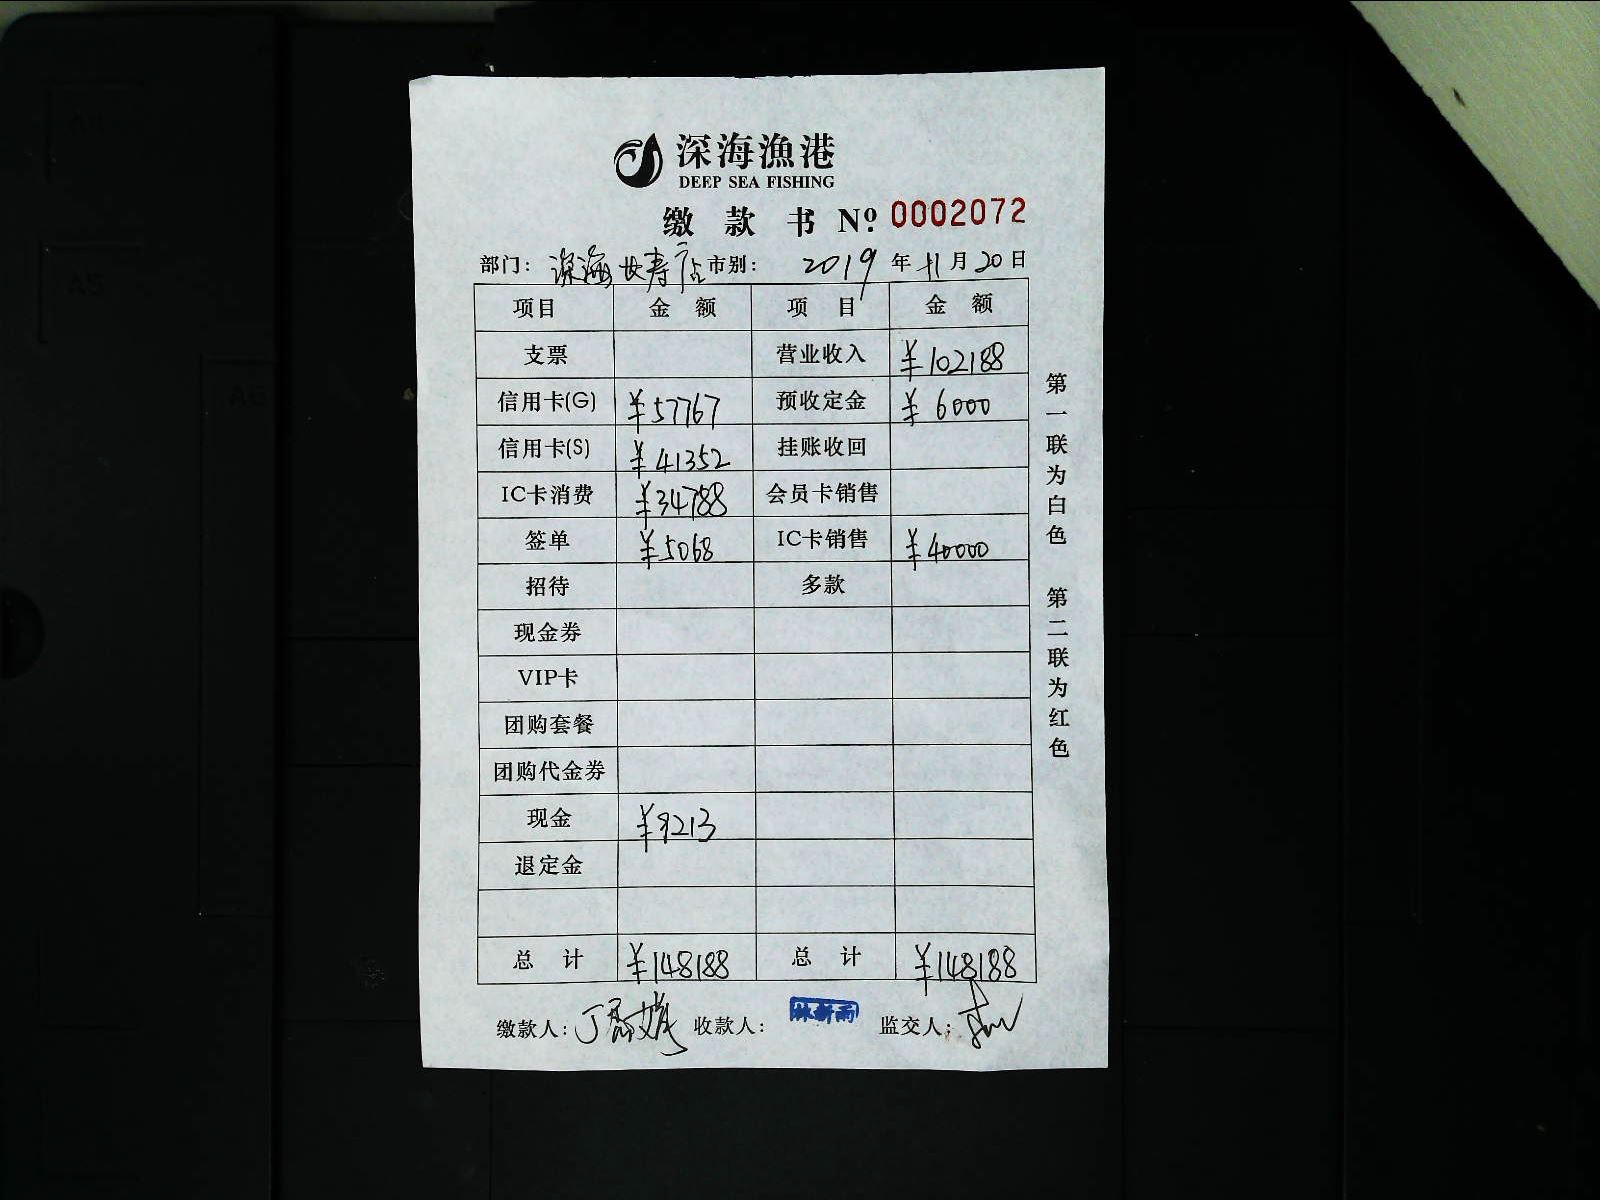 深海渔港
DEEP SEA FISHING
缴 款 书 Nº. 0002072
部门: 深海长寿店 市别: 2019 年 11 月 20 日
项目 金 额 项 目 金 额
支票 营业收入 ¥102188
信用卡(G) ¥57767 预收定金 ¥6000
信用卡(S) ¥41352 挂账收回
IC卡消费 ¥34788 会员卡销售
签单 ¥5068 IC卡销售 ¥40000
招待 多款
现金券
VIP卡
团购套餐
团购代金券
现金 ¥9213
退定金
总 计 ¥148188 总 计 ¥148188
缴款人: 收款人: 监交人:
第一联为白色 第二联为红色
A5